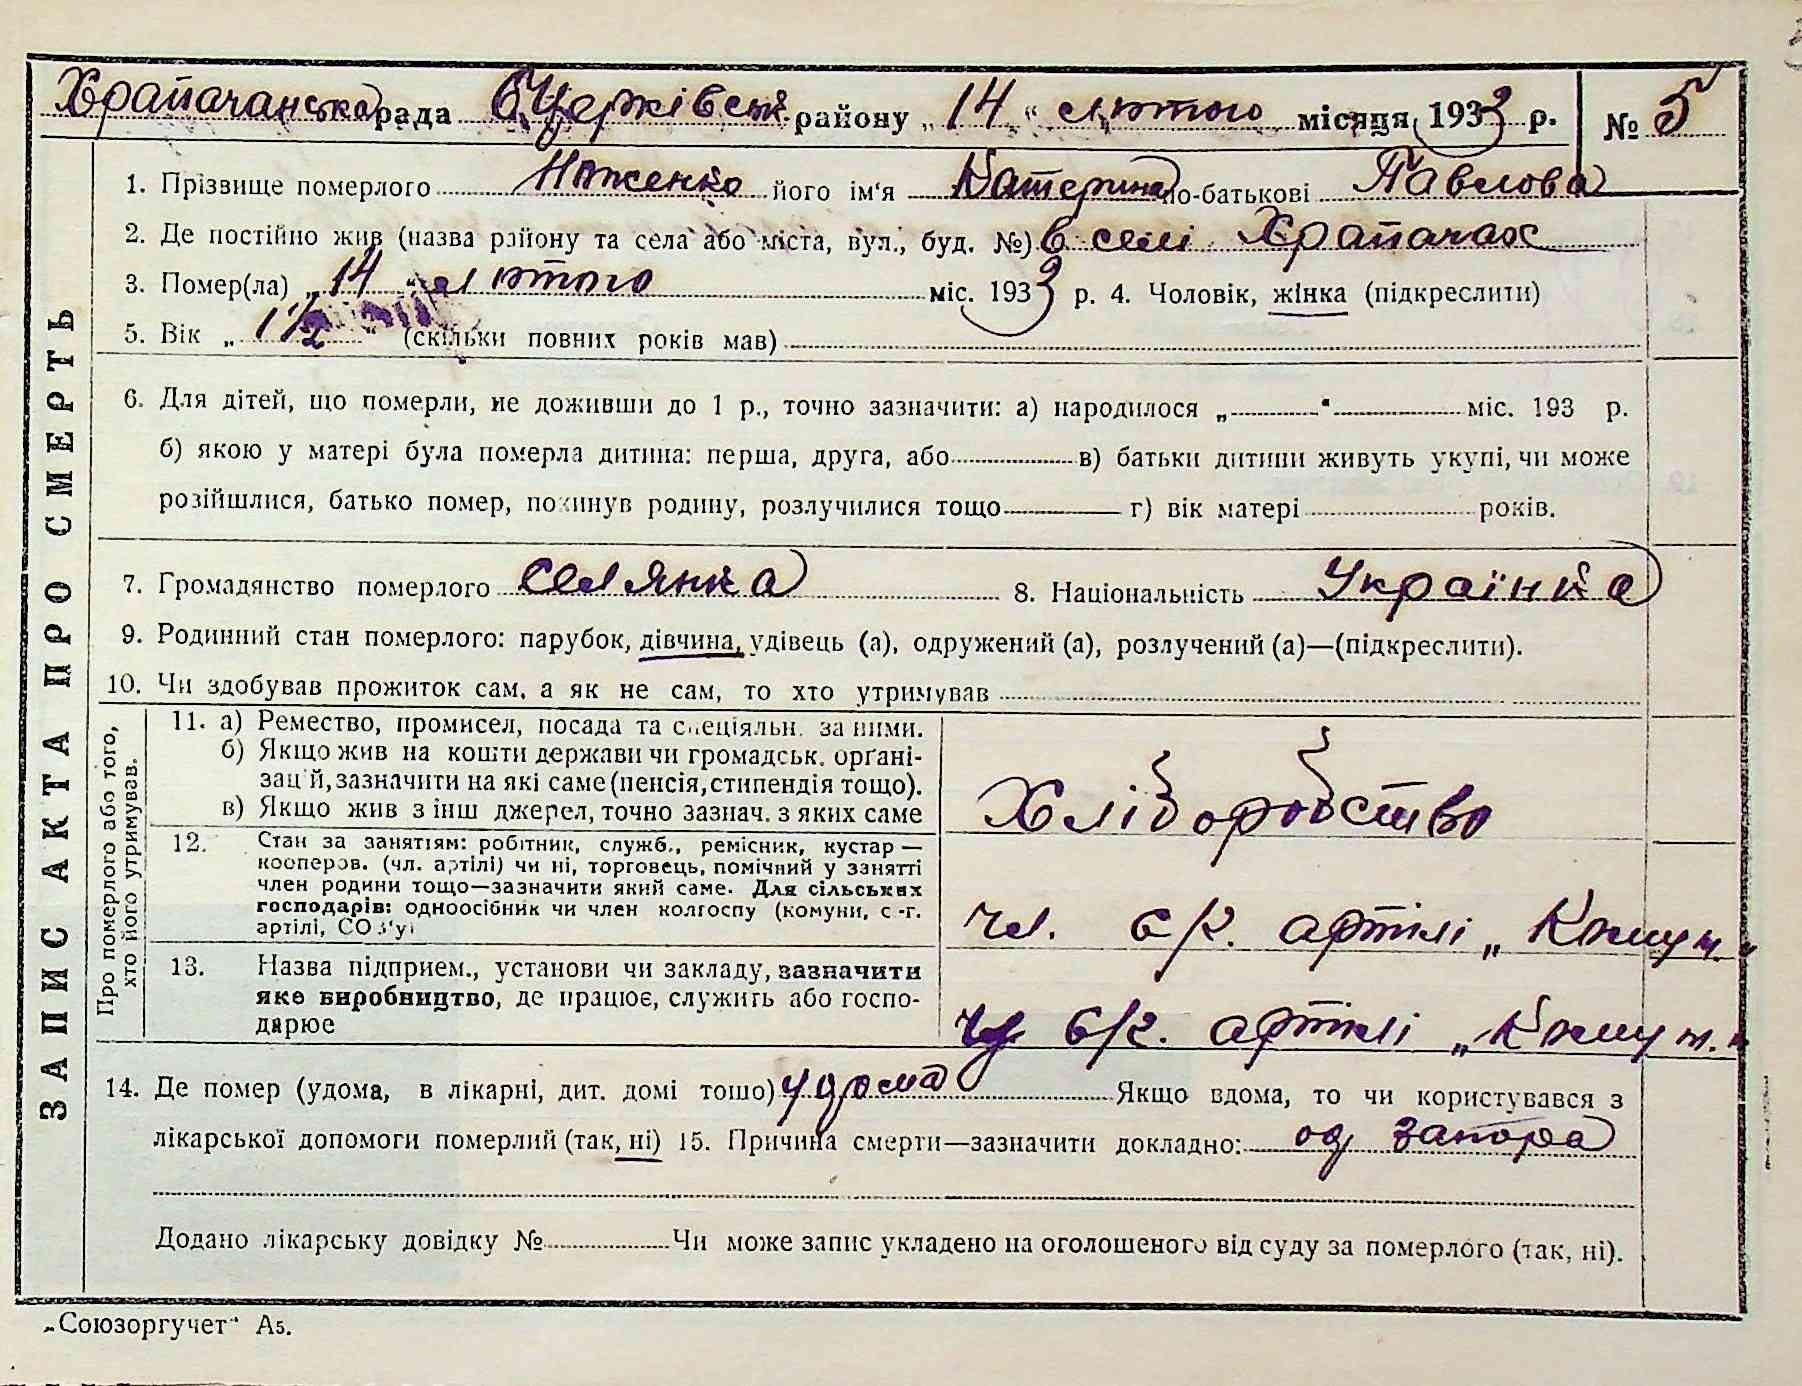 Храпачанська рада БЦерківськ. району „14“ лютого місяця 1933 р. № 5
ЗАПИС АКТА ПРО СМЕРТЬ
1. Прізвище померлого його ім‘я Катерина по-батькові Павлова
2. Де постійно жив (назва району та села або міста, вул., буд. №) в селі Храпачах
3. Помер(ла) „14“ лютого міс. 1933 р. 4. Чоловік, жінка (підкреслити)
5. Вік „1½“ (скільки повних років мав)
6. Для дітей, що померли, не доживши до 1 р., точно зазначити: а) народилося „ “ міс. 193 р.
б) якою у матері була померла дитина: перша, друга, або в) батьки дитини живуть укупі, чи може
розійшлися, батько помер, покинув родину, розлучилися тощо г) вік матері років.
7. Громадянство померлого селянка 8. Національність Українка
9. Родинний стан померлого: парубок, дівчина, удівець (а), одружений (а), розлучений (а)—(підкреслити).
10. Чи здобував прожиток сам, а як не сам, то хто утримував
Про померлого або того,
хто його утримував.
11. а) Ремество, промисел, посада та спеціяльн. за ними.
б) Якщо жив на кошти держави чи громадськ. орґані-
зац'й, зазначити на які саме (пенсія, стипендія тощо).
в) Якщо жив з інш джерел, точно зазнач. з яких саме
Хліборобство
12. Стан за занятіям: робітник, служб., ремісник, кустар —
кооперов. (чл. артілі) чи ні, торговець, помічний у занятті
член родини тощо—зазначити який саме. Для сільських
господарів: одноосібник чи член колгоспу (комуни, с-г.
артілі, СОЗ'у)
чл. с/г. артілі „
13. Назва підприєм., установи чи закладу, зазначити
яке виробництво, де працює, служить або госпо-
дарює
с/г. артілі „
14. Де помер (удома, в лікарні, дит. домі тощо) удома Якщо вдома, то чи користувався з
лікарської допомоги померлий (так, ні) 15. Причина смерти—зазначити докладно: од запора
Додано лікарську довідку № Чи може запис укладено на оголошеного від суду за померлого (так, ні).
„Союзоргучет“ А5.